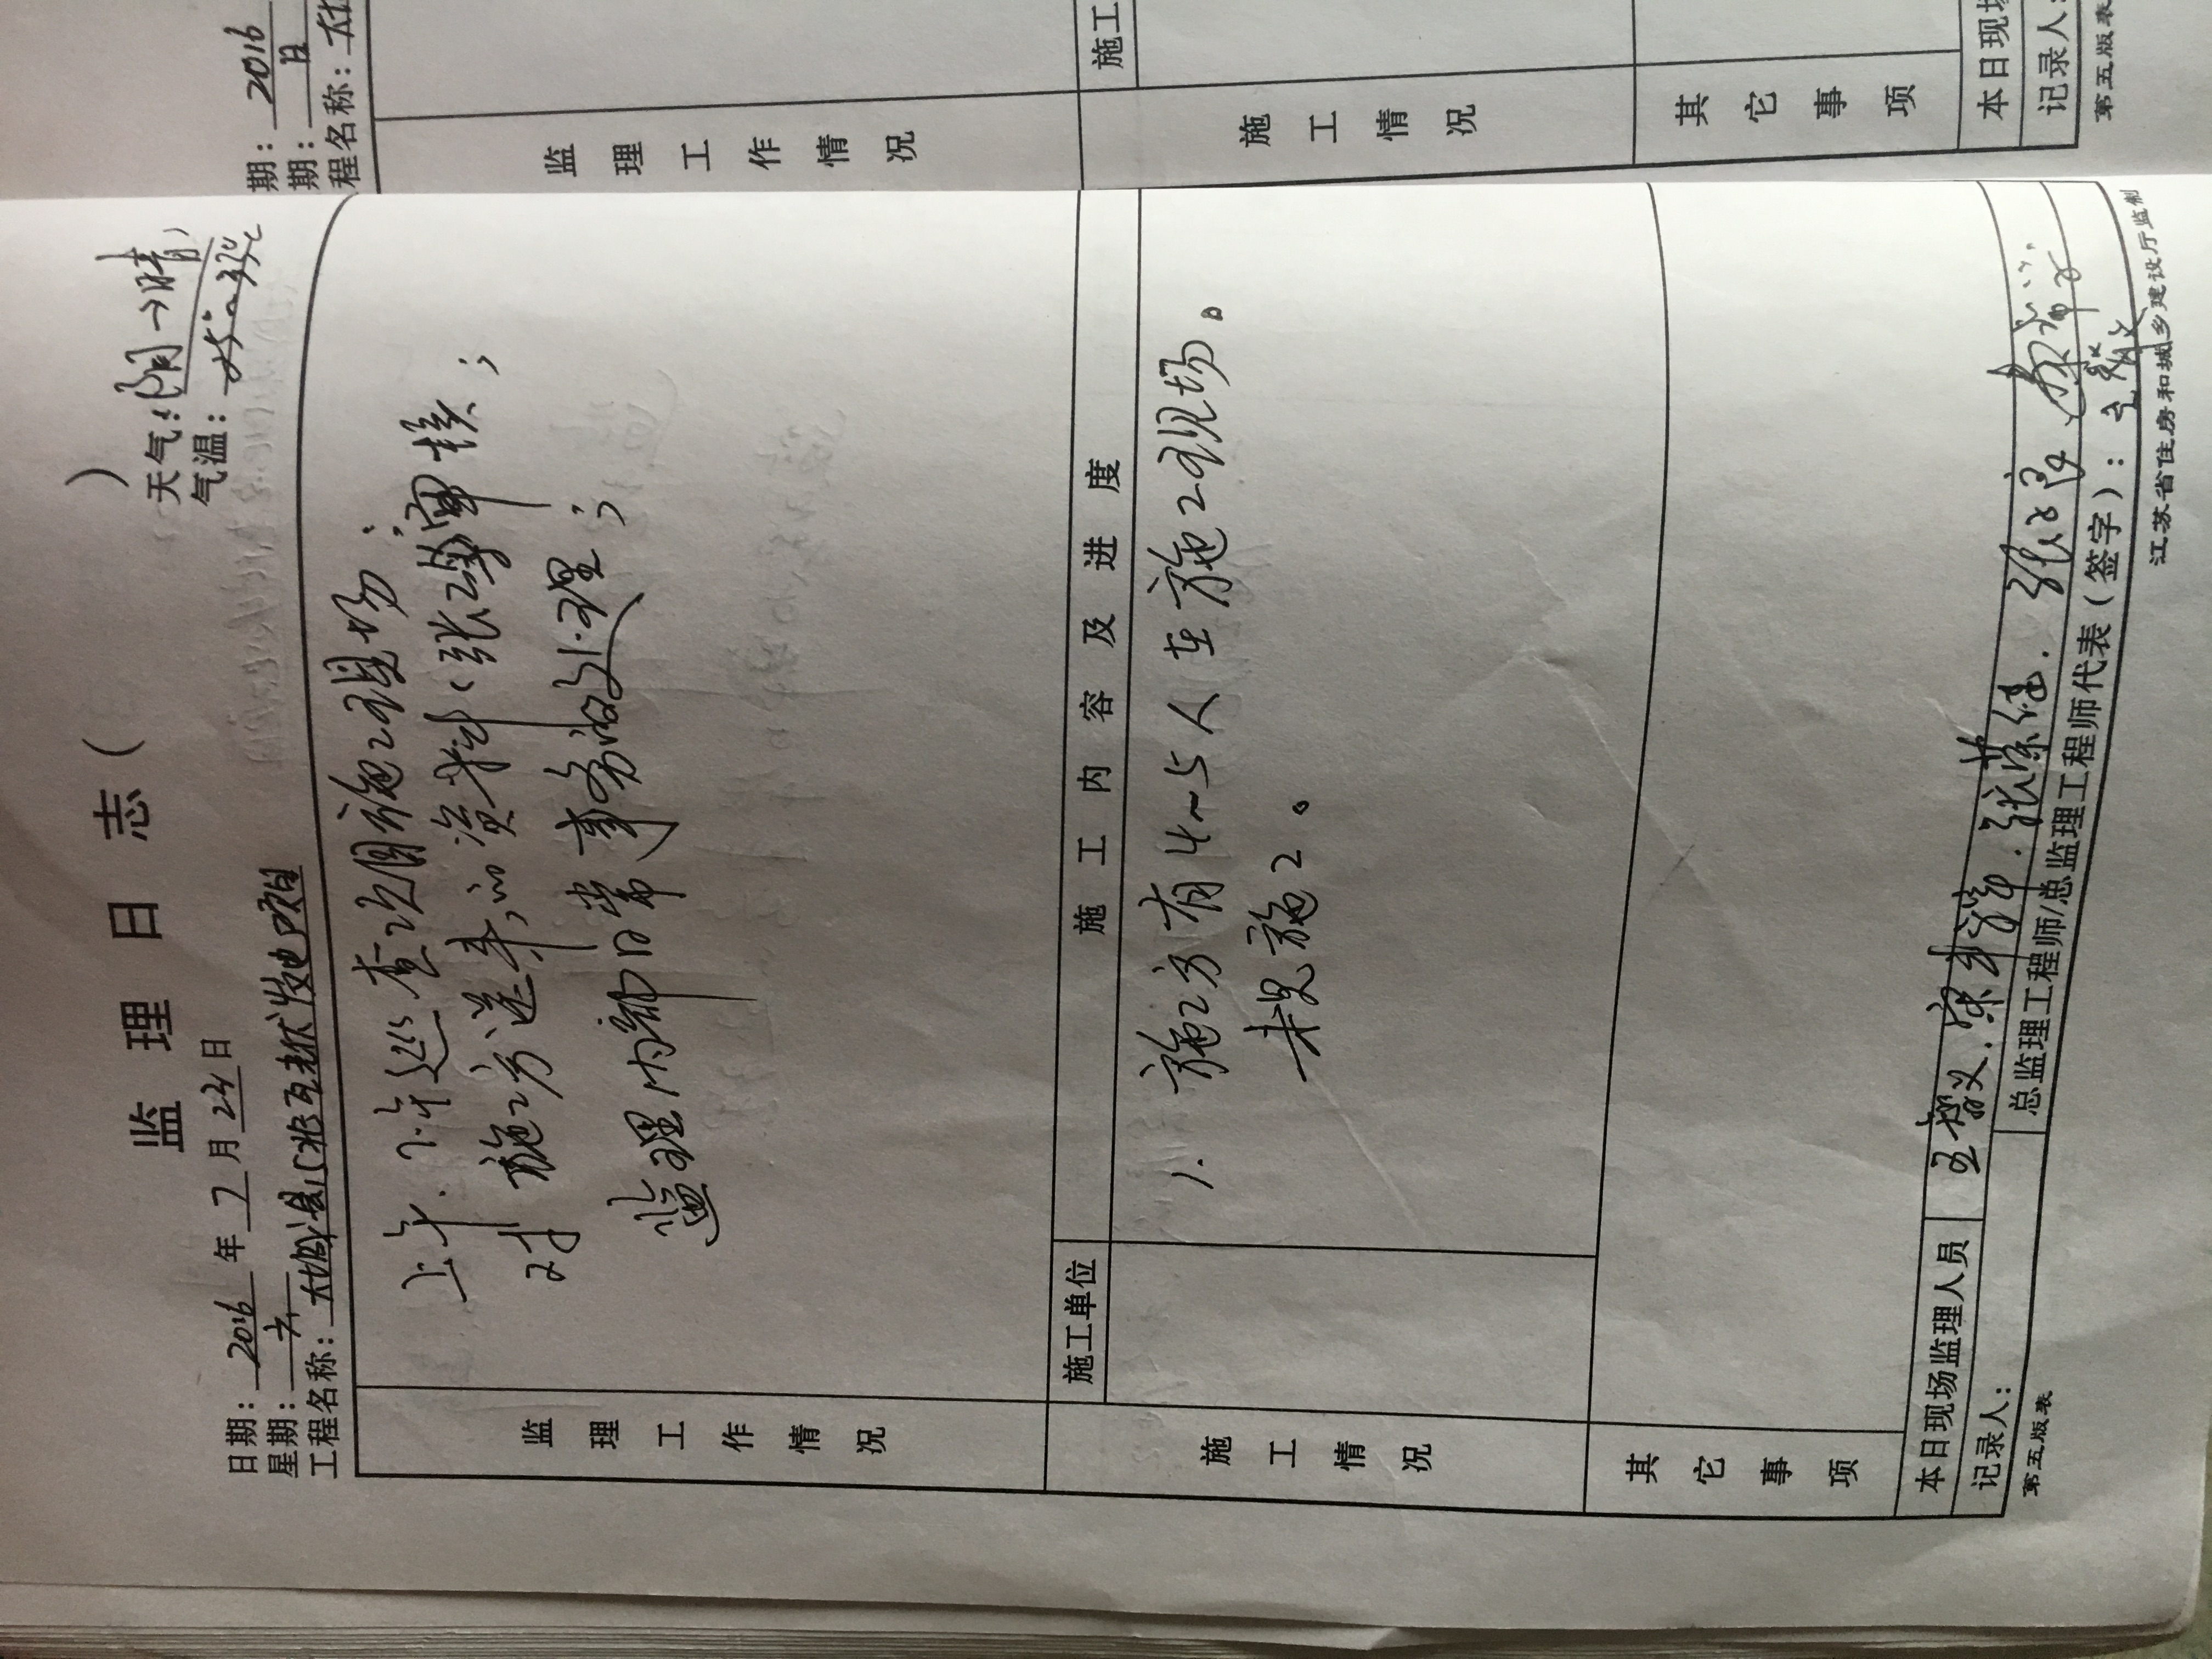 监理日志( )
日期:2016年7月23日 天气:(阴→晴)
星期:六 气温:25°
工程名称:大城县 发电项目
监理工作情况
上午.下午巡查次施工现场;
对施工方送来的资料(张 审核;
监理内部日常事务的处理;
施工情况
施工单位 施工内容及进度
1. 施工方有4~5人在施工现场。
未见施工。
其它事项
本日现场监理人员 张
记录人: 总监理工程师/总监理工程师代表(签字):
第五版表 江苏省住房和城乡建设厅监制
期:2016
期:日
程名称:大
监理工作情况
施工
施工情况
其它事项
本日现场
记录人:
第五版表